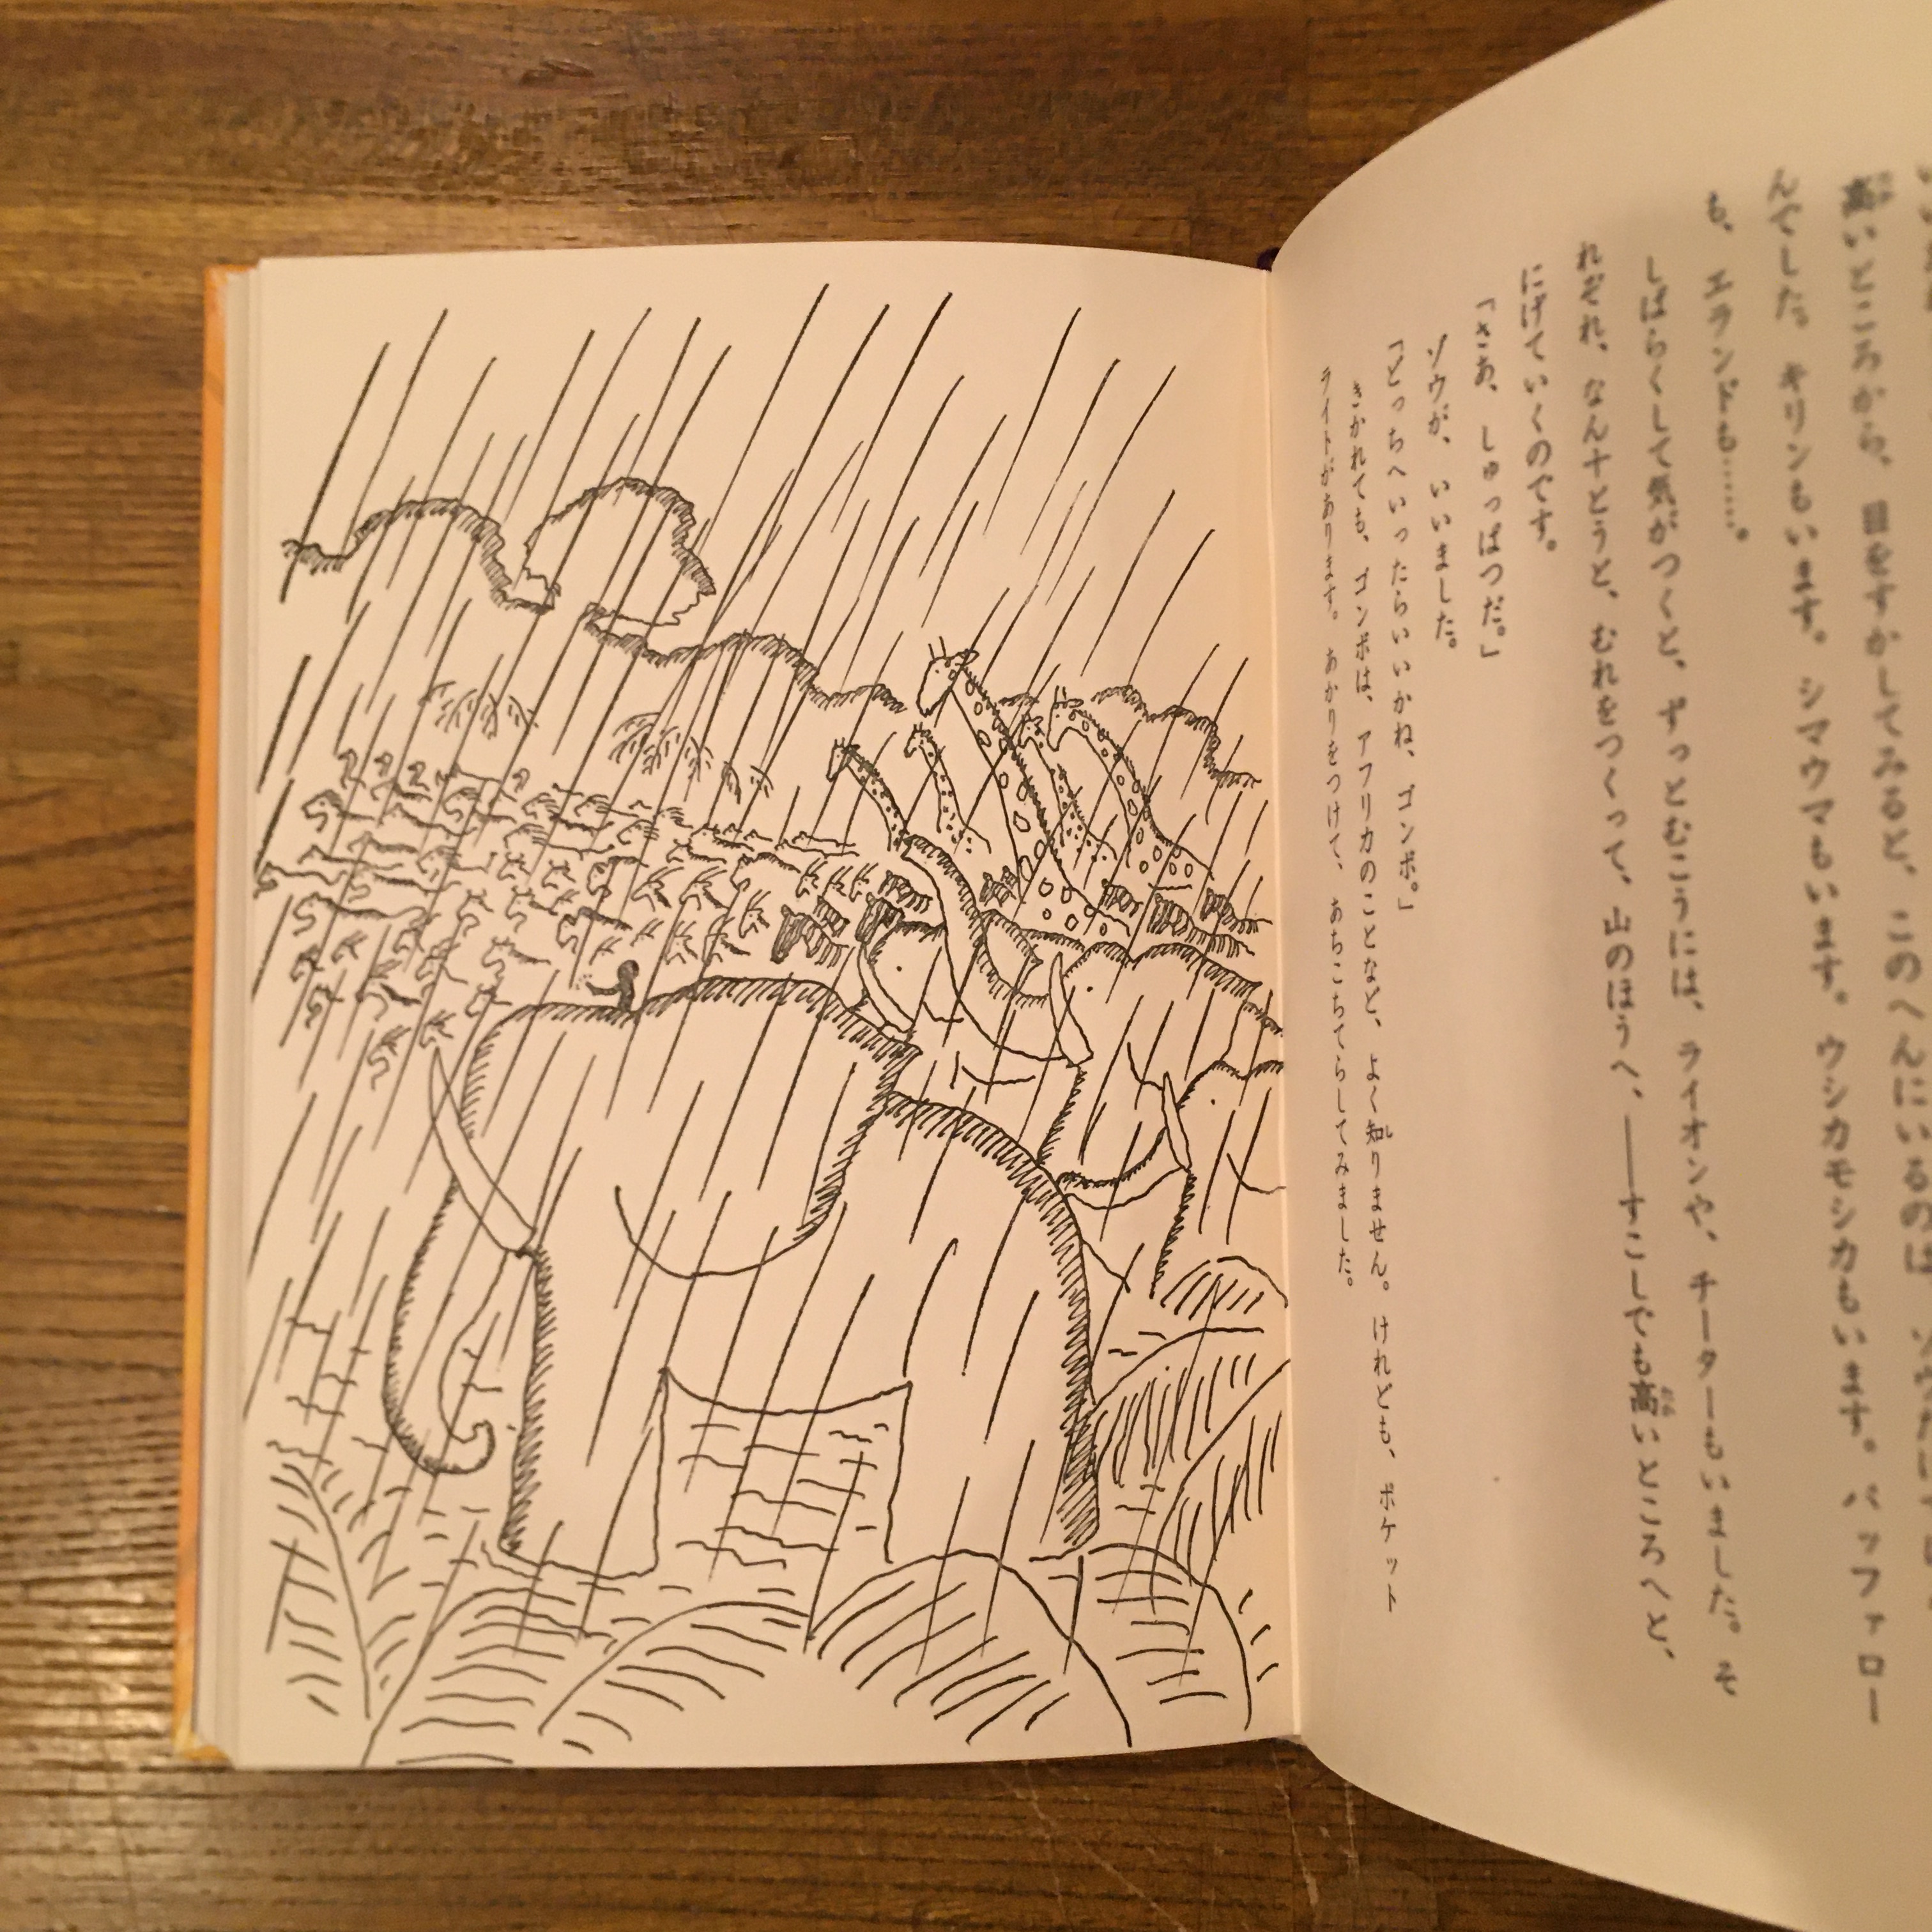 高いところから、目をすかしてみると、このへんにいるのは、ゾウだけ
んでした。キリンもいます。シマウマもいます。ウシカモシカもいます。バッファロー
も、エランドも……。
しばらくして気がつくと、ずっとむこうには、ライオンや、チーターもいました。そ
れぞれ、なん十とうと、むれをつくって、山のほうへ、――すこしでも高いところへと、
にげていくのです。
「さあ、しゅっぱつだ。」
ゾウが、いいました。
「どっちへいったらいいかね、ゴンボ。」
きかれても、ゴンボは、アフリカのことなど、よく知りません。けれども、ポケット
ライトがあります。あかりをつけて、あちこちてらしてみました。